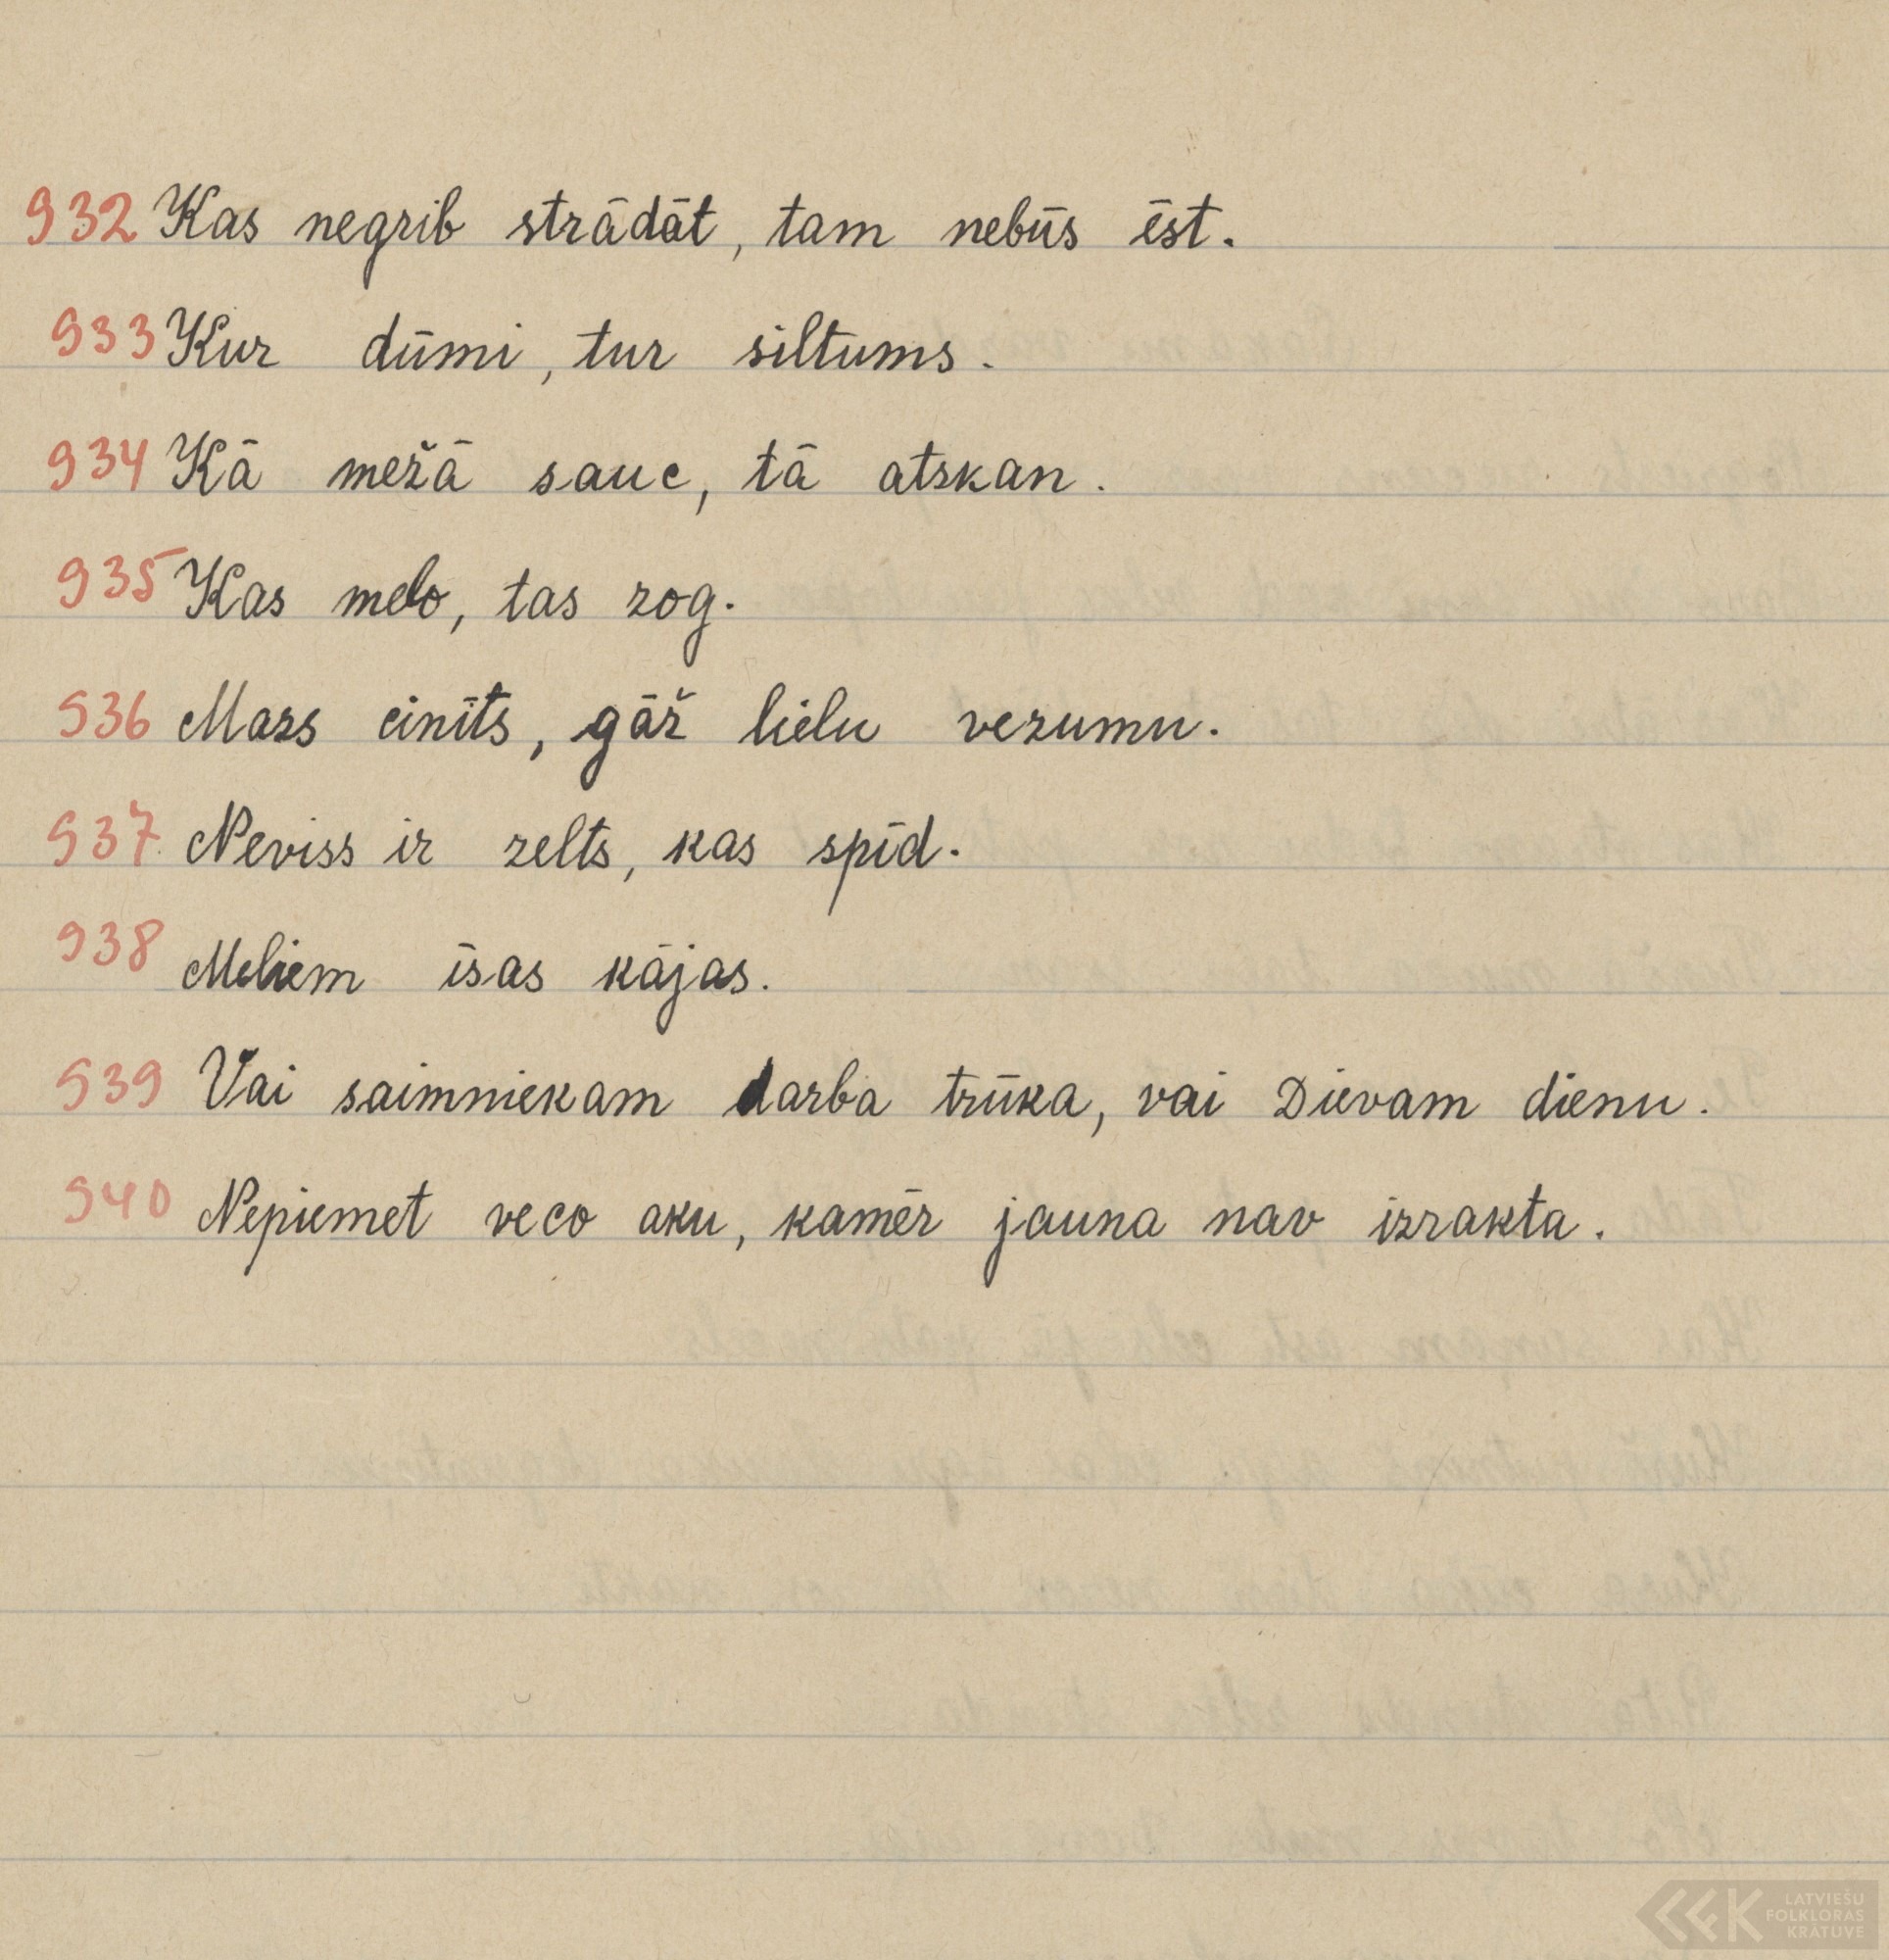 932 Kas negrib strādāt, tam nebūs ēst.
933 Kur dūmi, tur siltums.
934 Kā mežā sauc, tā atskan.
935 Kas melo, tas zog.
936 Mazs cinīts, gāž lielu vezumu.
937 Neviss ir zelts, kas spīd.
938 Meliem īsas kājas.
939 Vai saimniekam darba trūka, vai Dievam dienu.
940 Nepiemet veco aku, kamēr jauna nav izrakta.
LATVIEŠU
FOLKLORAS
KRĀTUVE